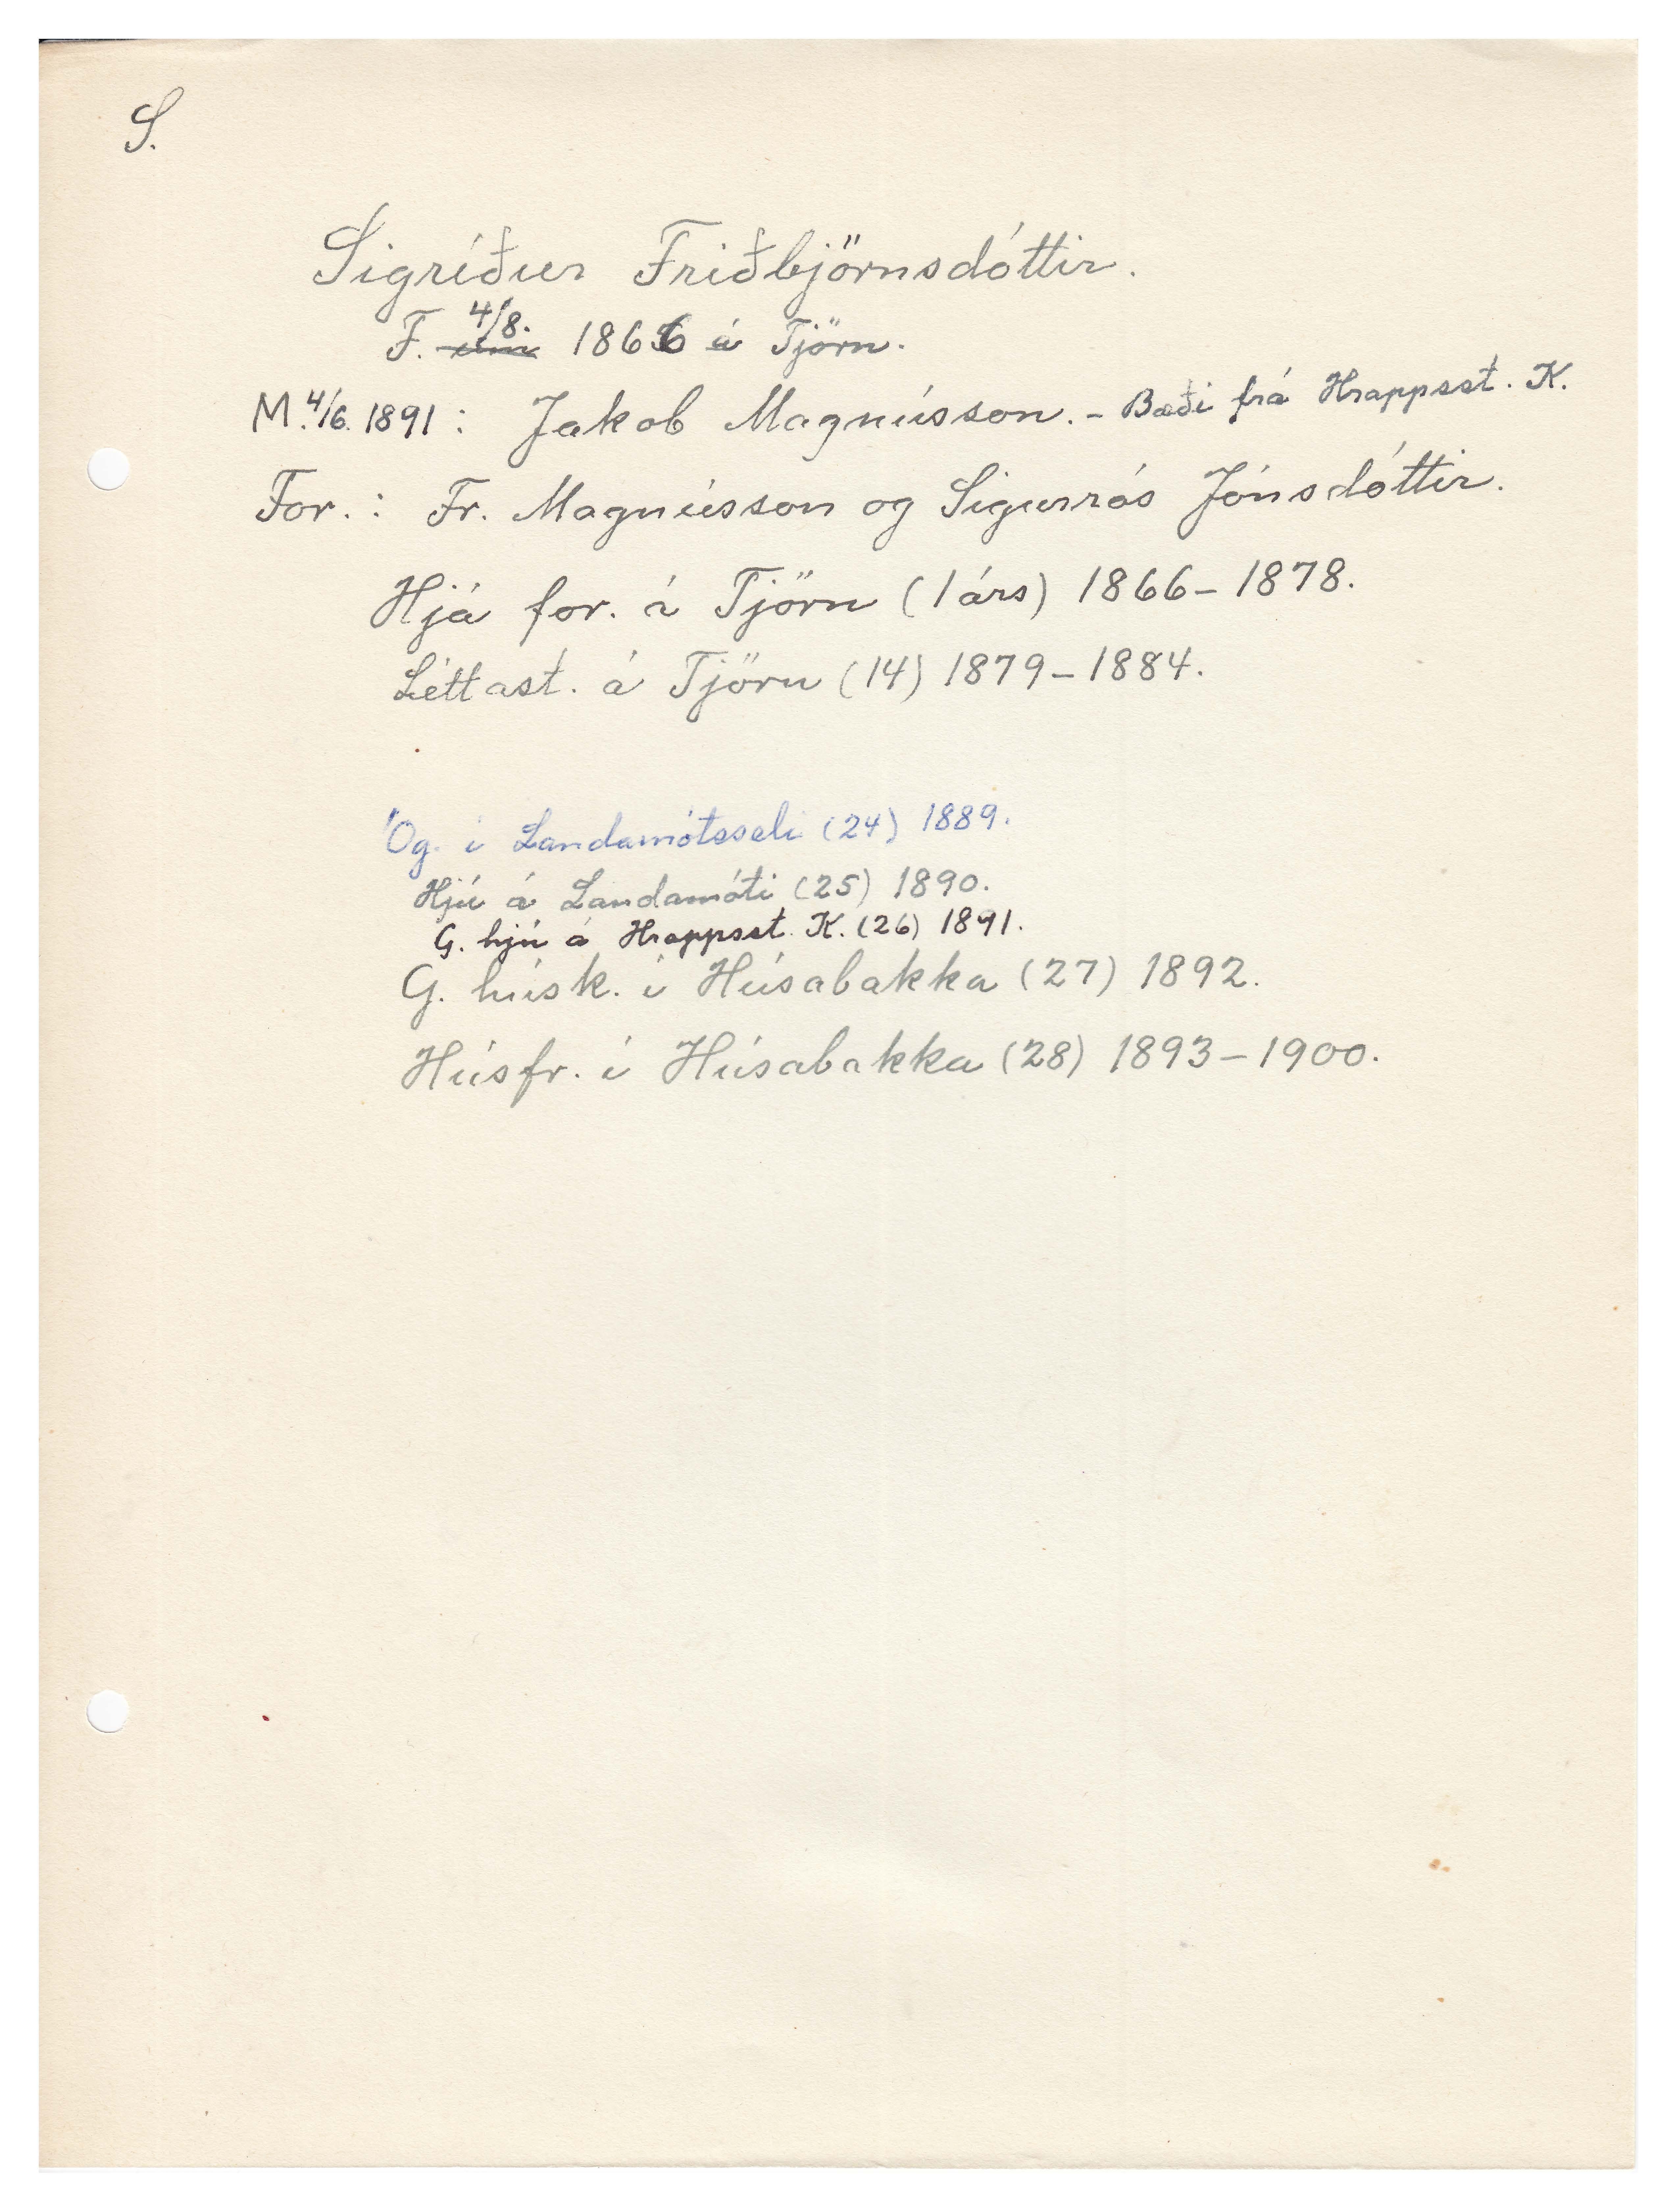 S.
Sigríður Friðbjörnsdóttir.
F. 4/8. 1866 á Tjörn.
M. 4/6. 1891: Jakob Magnússon. - Bæði frá Hrappsst. K.
For.: Fr. Magnússon og Sigurrós Jónsdóttir.
Hjá for. á Tjörn (1 árs) 1866-1878.
Léttast. á Tjörn (14) 1879-1884.
Óg. í Landamótsseli (24) 1889.
Hjú á Landamóti (25) 1890.
G. hjú á Hrappsst. K. (26) 1891.
G. húsk. í Húsabakka (27) 1892.
Húsfr. í Húsabakka (28) 1893-1900.